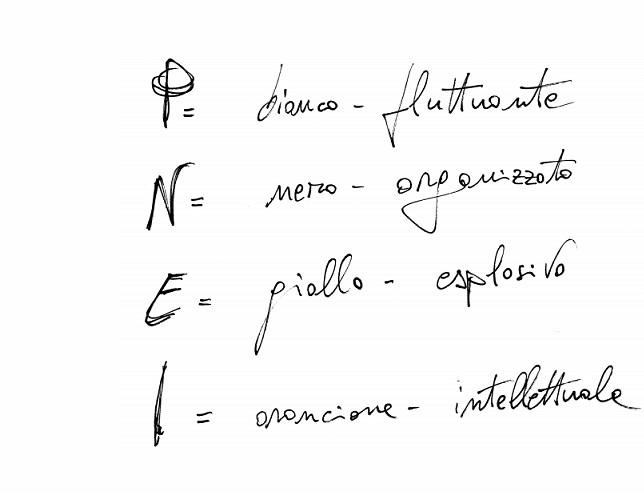 P = bianco - fluttuante
N = nero - organizzato
E = giallo - esplosivo
I = arancione - intellettuale